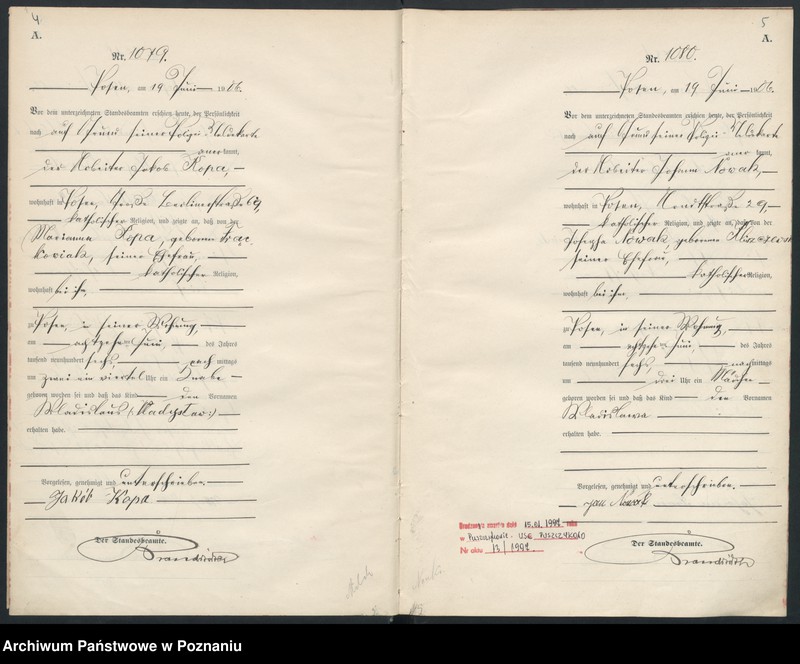 4
A.
Nr. 1079.
Posen, am 19 Juni 1906.
Vor dem unterzeichneten Standesbeamten erschien heute, der Persönlichkeit
nach auf Grund seiner Polizei-Meldekarte
anerkannt,
der Arbeiter Jakob Kopa,
wohnhaft in Posen, Große Berlinerstraße 69,
katholischer Religion, und zeigte an, daß von der
Marianna Kopa, geborenen
seiner Ehefrau,
katholischer Religion,
wohnhaft bei ihm,
zu Posen, in seiner Wohnung,
am achtzehnten Juni, des Jahres
tausend neunhundert sechs, nachmittags
um zwei ein viertel Uhr ein Knabe
geboren worden sei und daß das Kind den Vornamen
Wladislaus (Wladyslaw)
erhalten habe.
Vorgelesen, genehmigt und unterschrieben.
Jakób Kopa
Der Standesbeamte.
5
A.
Nr. 1080.
Posen, am 19 Juni 1906.
Vor dem unterzeichneten Standesbeamten erschien heute, der Persönlichkeit
nach auf Grund seiner Polizei-Meldekarte
anerkannt,
der Arbeiter Johann Nowak,
wohnhaft in Posen, 29,
katholischer Religion, und zeigte an, daß von der
Josepha Nowak geborenen
seiner Ehefrau,
katholischer Religion,
wohnhaft bei ihm,
zu Posen, in seiner Wohnung,
am achtzehnten Juni, des Jahres
tausend neunhundert sechs, nachmittags
um drei Uhr ein Mädchen
geboren worden sei und daß das Kind den Vornamen
Wladislawa
erhalten habe.
Vorgelesen, genehmigt und unterschrieben.
Jan Nowak
dnia 15.01.1997 roku
w Puszczykowie - USC PUSZCZYKOWO
Nr aktu 13/1997
Der Standesbeamte.
Archiwum Państwowe w Poznaniu